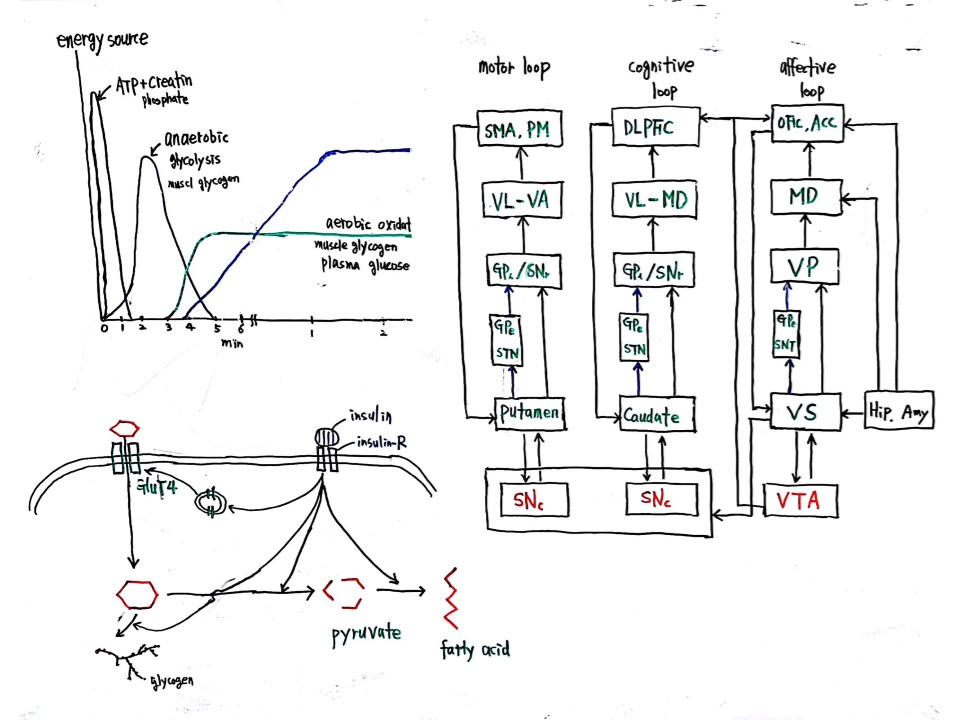 energy source
ATP+Creatin
phosphate
anaerobic
glycolysis
muscl glycogen
aerobic oxidat
muscle glycogen
plasma glucose
0 1 2 3 4 5 6 1 2
min
motor loop
SMA, PM
VL-VA
GPi/SNr
GPe
STN
Putamen
SNc
cognitive
loop
DLPFC
VL-MD
GPi/SNr
GPe
STN
Caudate
SNc
affective
loop
OFC, Acc
MD
VP
GPe
SNT
VS
Hip, Amy
VTA
insulin
insulin-R
GluT4
pyruvate
fatty acid
glycogen